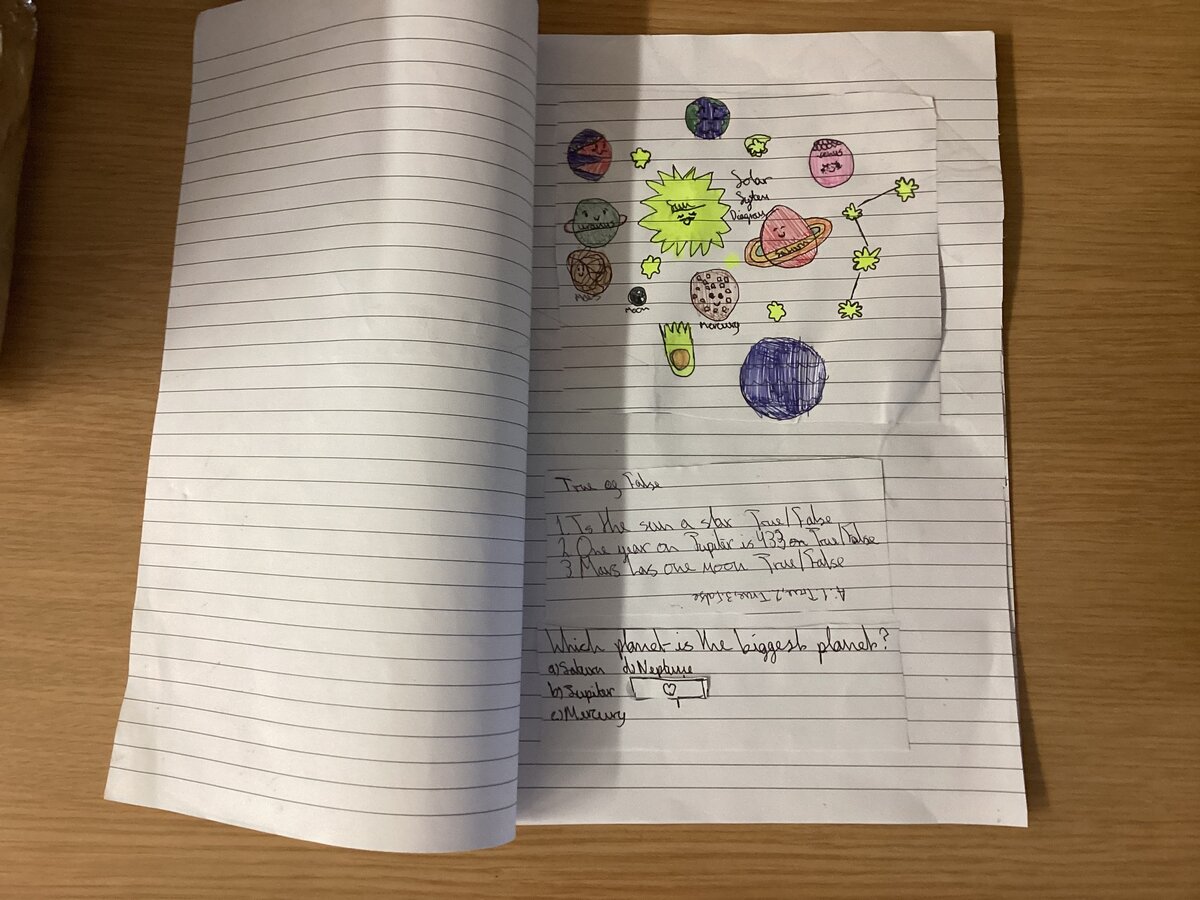 Venus
Solar
System
Diagram
Sun
Uranus
Saturn
Mars
Moon
Mercury
True or False
1 Is the sun a star True/False
2 One year on Jupiter is 433 on True/False
3 Mars has one moon True/False
A:1.True,2.True,3.False
Which planet is the biggest planet?
a)Saturn d)Neptune
b)Jupiter
c)Mercury